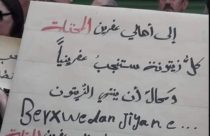 إلى أهالي عفرين المحتلة
كل زيتونة ستنجب عفرينياً
ومحال أن ينتهي الزيتون
Berxwedan Jiyane...